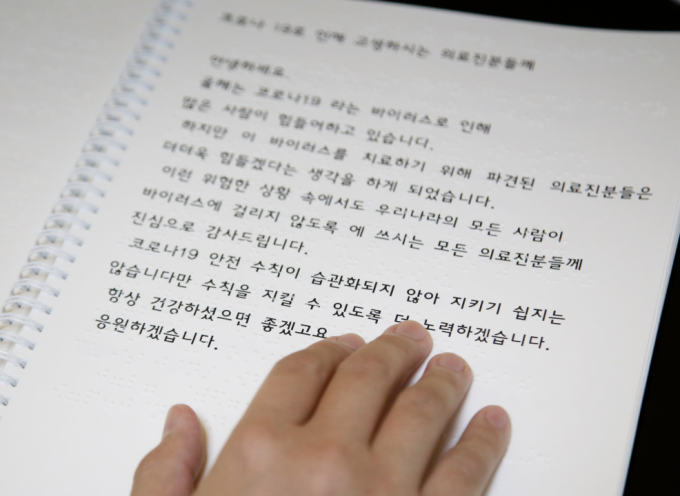 코로나 19로 인해 고생하시는 의료진분들께
안녕하세요.
올해는 코로나19 라는 바이러스로 인해
많은 사람이 힘들어하고 있습니다.
하지만 이 바이러스를 치료하기 위해 파견된 의료진분들은
더더욱 힘들겠다는 생각을 하게 되었습니다.
이런 위험한 상황 속에서도 우리나라의 모든 사람이
바이러스에 걸리지 않도록 애 쓰시는 모든 의료진분들께
진심으로 감사드립니다.
코로나19 안전 수칙이 습관화되지 않아 지키기 쉽지는
않습니다만 수칙을 지킬 수 있도록 더 노력하겠습니다.
항상 건강하셨으면 좋겠고요
응원하겠습니다.